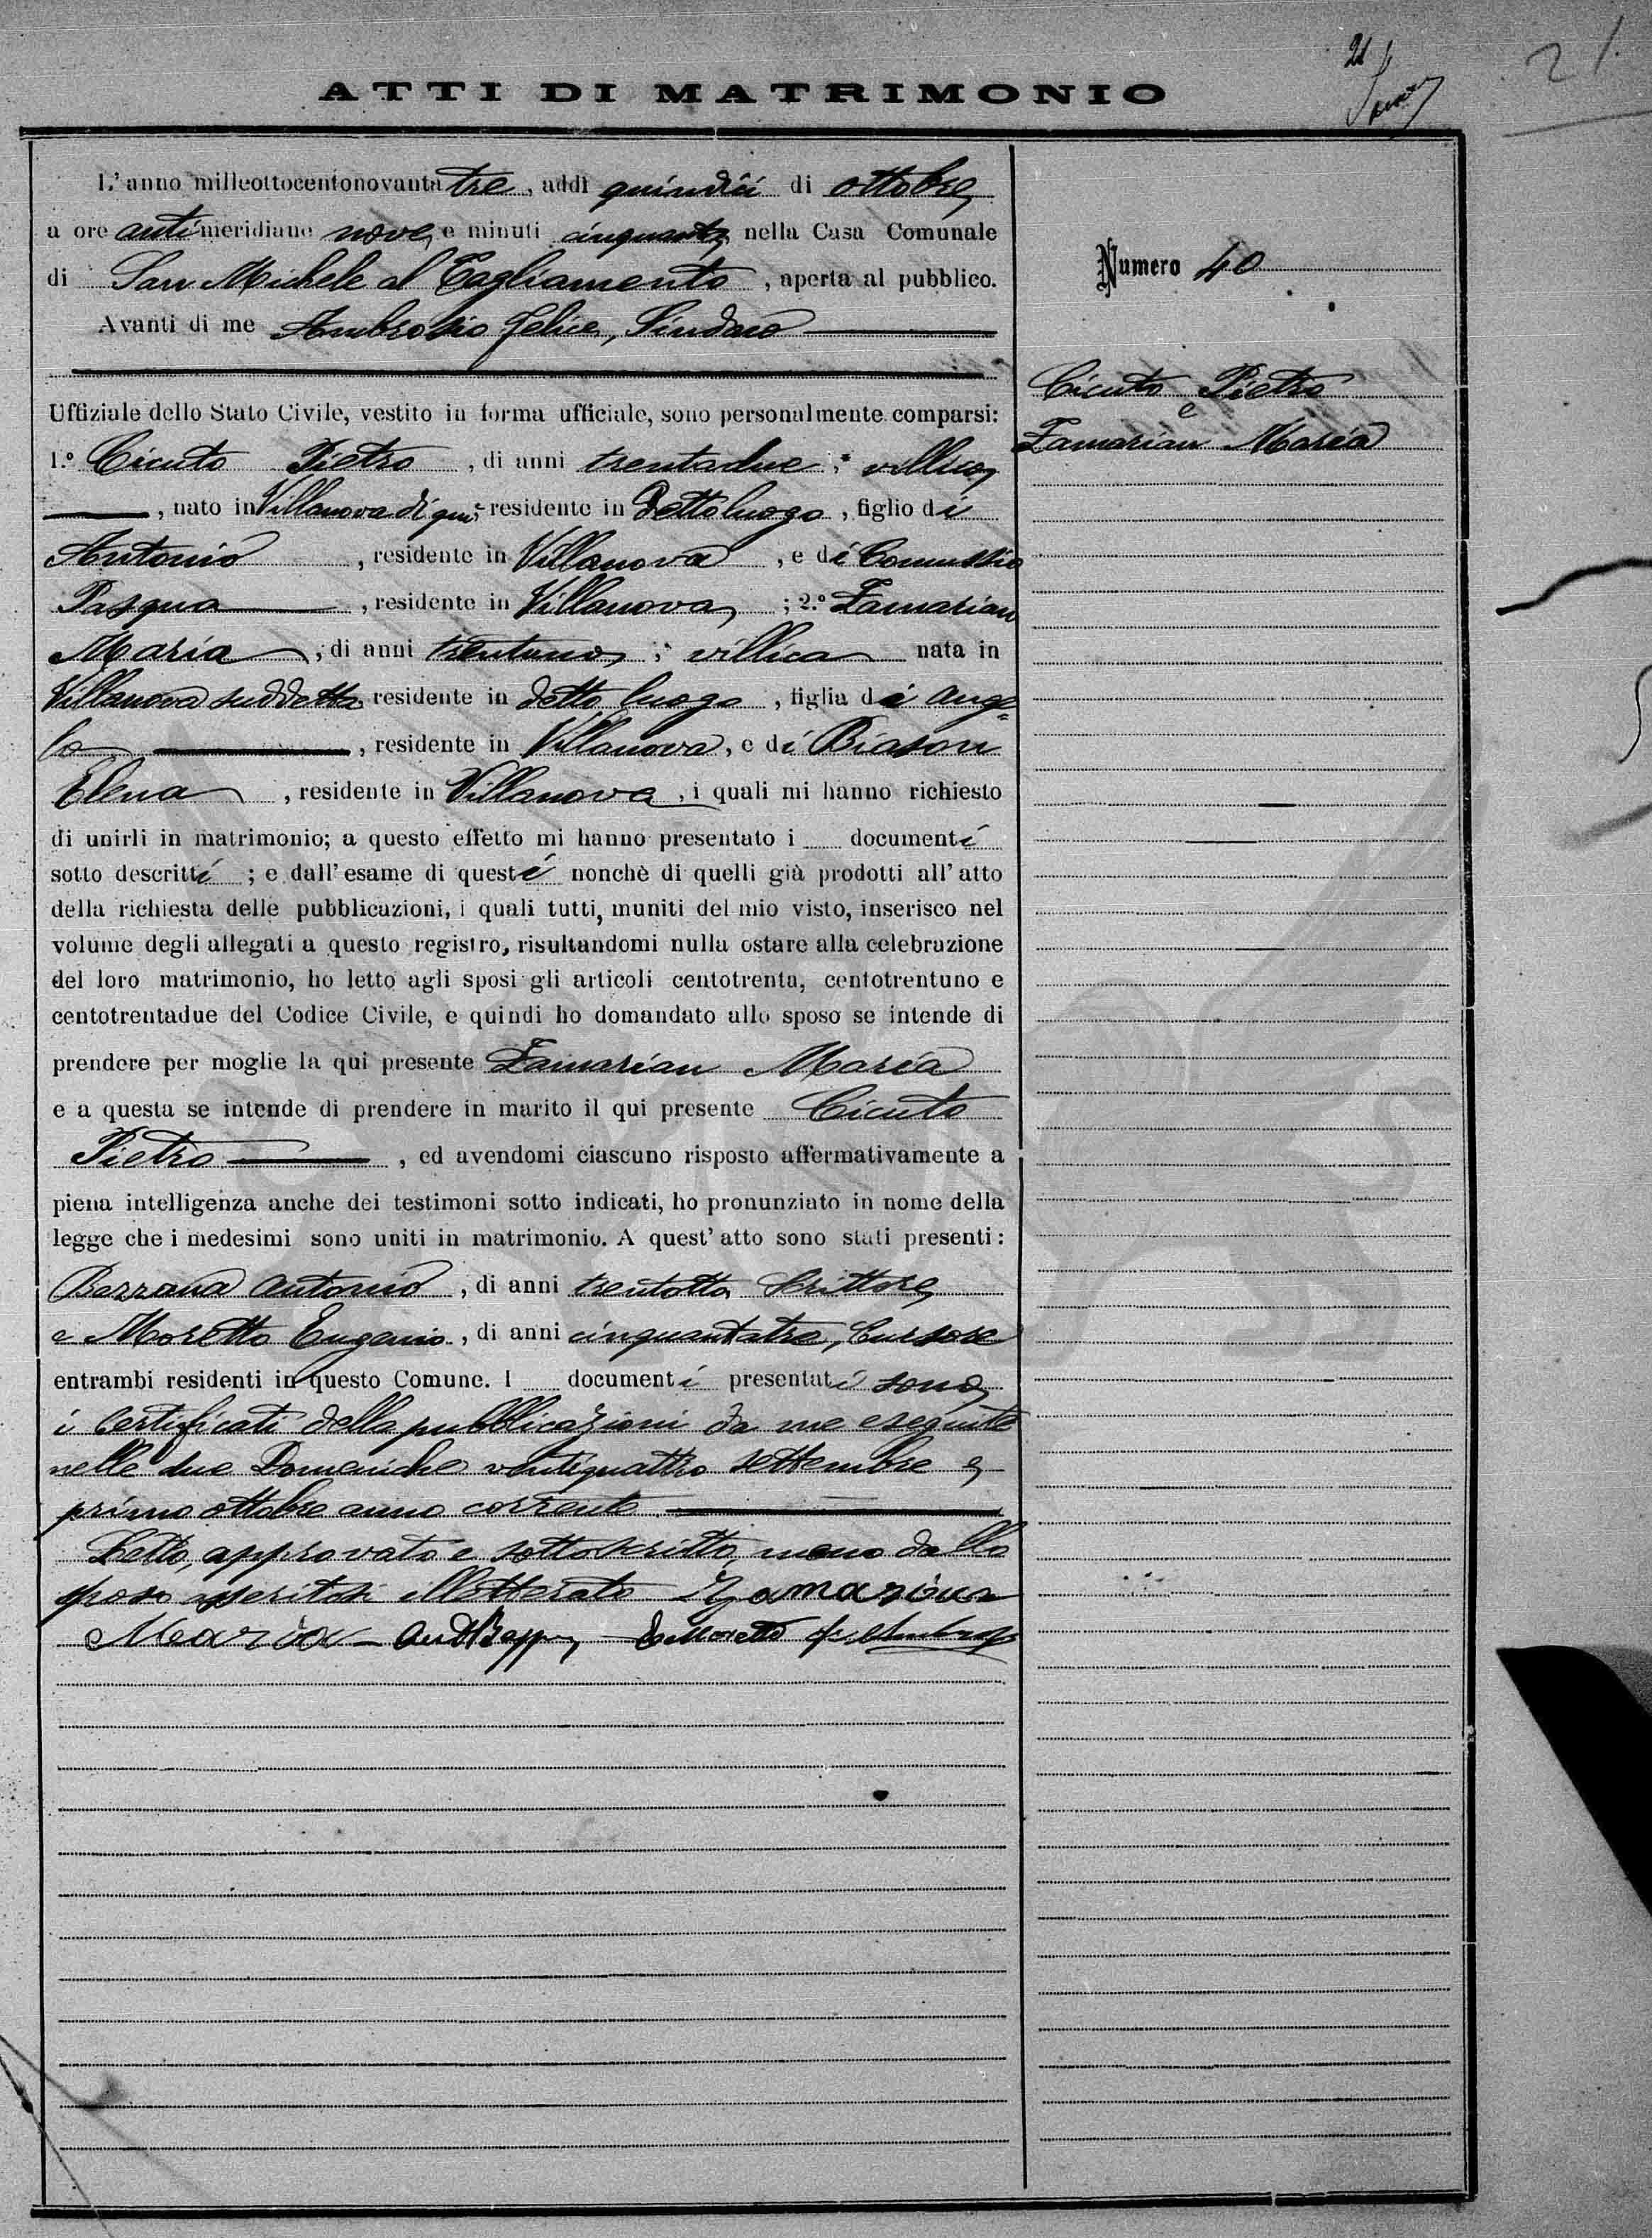 21
21
ATTI DI MATRIMONIO
L'anno milleottocentonovanta tre, addì quindici di ottobre
a ore antimeridiane nove e minuti cinquanta nella Casa Comunale
di San Michele al Tagliamento, aperta al pubblico.
Avanti di me Ambrosio Felice, Sindaco
Uffiziale dello Stato Civile, vestito in forma ufficiale, sono personalmente comparsi:
1.º Cicuto Pietro, di anni trentadue, villico
, nato in Villanova di qui, residente in detto luogo, figlio di
Antonio, residente in Villanova, e di Comussio
Pasqua, residente in Villanova; 2.º Zamarian
Maria, di anni trentuno, villica nata in
Villanova suddetta residente in detto luogo, figlia di Ange=
lo, residente in Villanova, e di Biason
Elena, residente in Villanova, i quali mi hanno richiesto
di unirli in matrimonio; a questo effetto mi hanno presentato i documenti
sotto descritti; e dall'esame di questi nonchè di quelli già prodotti all'atto
della richiesta delle pubblicazioni, i quali tutti, muniti del mio visto, inserisco nel
volume degli allegati a questo registro, risultandomi nulla ostare alla celebrazione
del loro matrimonio, ho letto agli sposi gli articoli centotrenta, centotrentuno e
centotrentadue del Codice Civile, e quindi ho domandato allo sposo se intende di
prendere per moglie la qui presente Zamarian Maria
e a questa se intende di prendere in marito il qui presente Cicuto
Pietro, ed avendomi ciascuno risposto affermativamente a
piena intelligenza anche dei testimoni sotto indicati, ho pronunziato in nome della
legge che i medesimi sono uniti in matrimonio. A quest'atto sono stati presenti:
Bazzana Antonio, di anni trentotto, Scrittore
e Moretto Eugenio, di anni cinquantatre, Cursore
entrambi residenti in questo Comune. I documenti presentati sono
i Certificati delle pubblicazioni da me eseguite
nelle due Domeniche ventiquattro settembre e
primo ottobre anno corrente.
Letto, approvato e sottoscritto, meno dallo
sposo asseritosi illetterato Zamarian
Maria E Moretto
Numero 40
Cicuto Pietro
e
Zamarian Maria